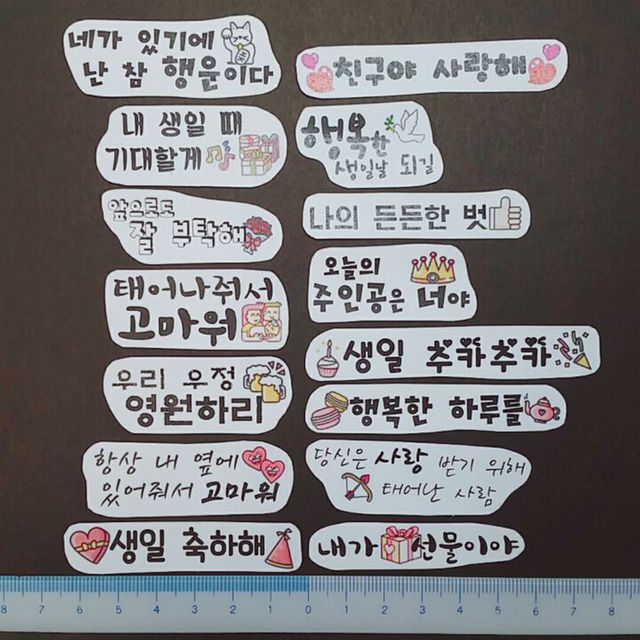 네가 있기에
난 참 행운이다
내 생일 때
기대할게
앞으로도
잘 부탁해
태어나줘서
고마워
우리 우정
영원하리
항상 내 옆에
있어줘서 고마워
생일 축하해
친구야 사랑해
행복한
생일날 되길
나의 든든한 벗
오늘의
주인공은 너야
생일 추카추카
행복한 하루를
당신은 사랑 받기 위해
태어난 사람
내가 선물이야
8 7 6 5 4 3 2 1 0 1 2 3 4 5 6 7 8